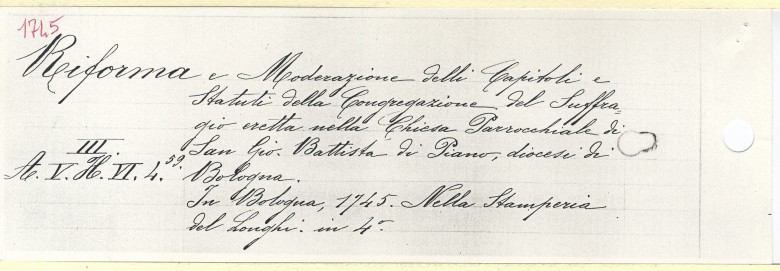 1745
Riforma e Moderazione delli Capitoli e
Statuti della Congregazione del Suffra-
gio eretta nella Chiesa Parrocchiale di
San Gio. Battista di Piano, diocesi di
Bologna.
III.
A. V. H. VI. 4.59
In Bologna, 1745. Nella Stamperia
del Longhi. in 4°